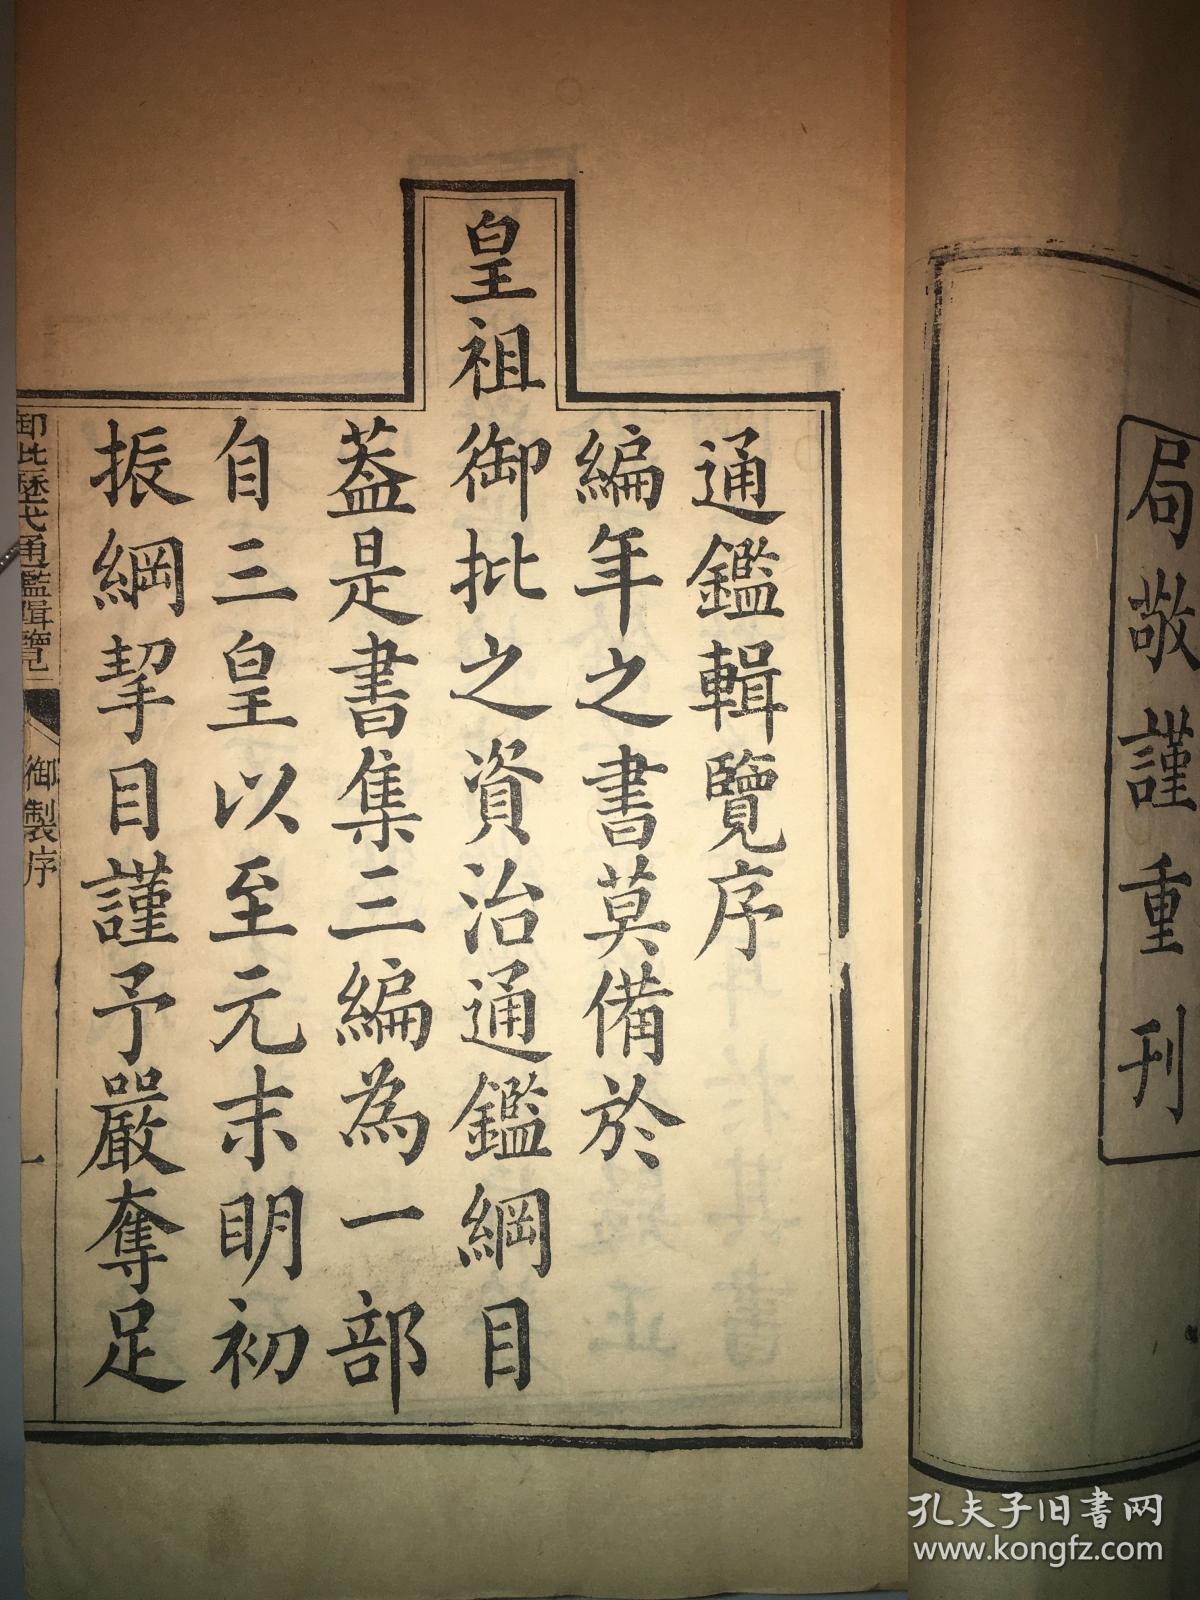 局敬謹重刊
通鑑輯覽序
編年之書莫備於
皇祖御批之資治通鑑綱目
葢是書集三編為一部
自三皇以至元末明初
振綱挈目謹予嚴奪足
御批歷代通鑑輯覽
御製序
一
孔夫子旧书网
www.kongfz.com